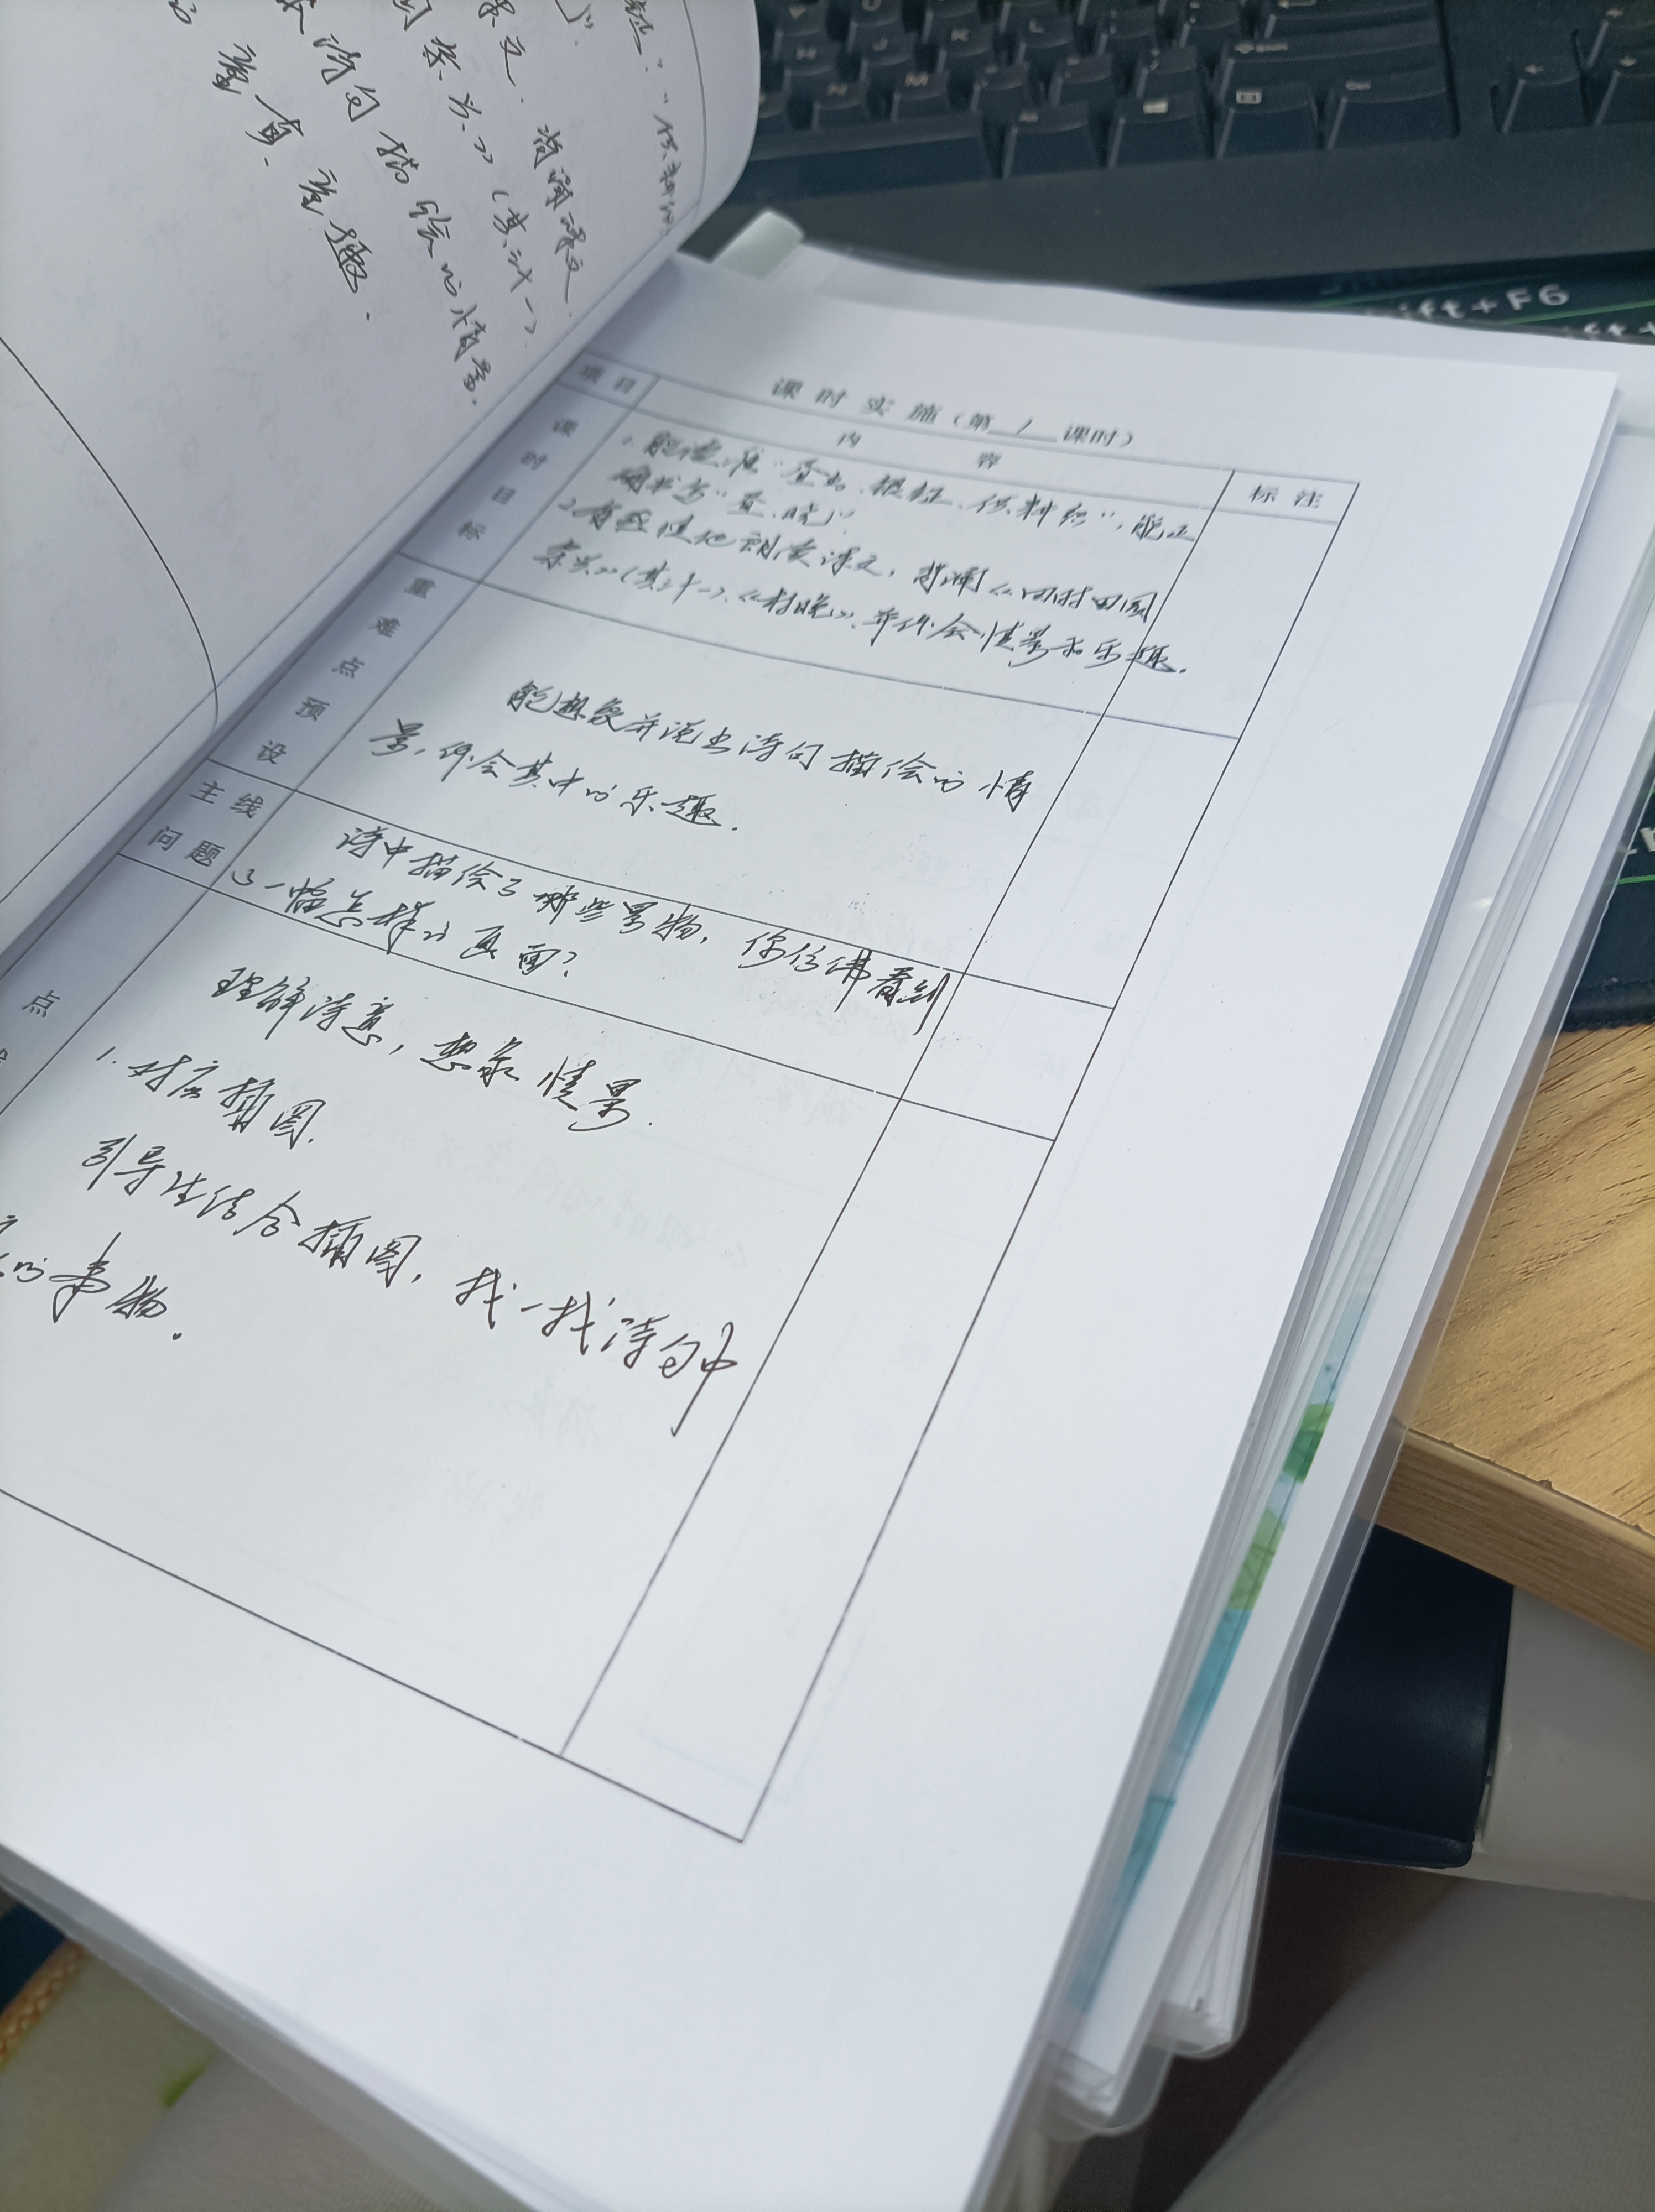 课文.背诵课文
》(其三十一).
诗句描绘的情景.
童真.童趣.
"供耕织
课时实施(第1课时)
项目
内容
标注
课时目标
1.能读准"昼出、供耕织",能正
确书写"昼、晓".
2.有感情地朗读课文,背诵《四时田园
杂兴》(其三十一)、《村晚》.并体会情景和乐趣.
重难点预设
能想象并说出诗句描绘的情
景,体会其中的乐趣.
主线
问题
诗中描绘了哪些景物,你仿佛看到
了一幅怎样的画面?
点
理解诗意,想象情景.
1.对应插图.
引导生结合插图,找一找诗句中
的事物.
Shift+F6